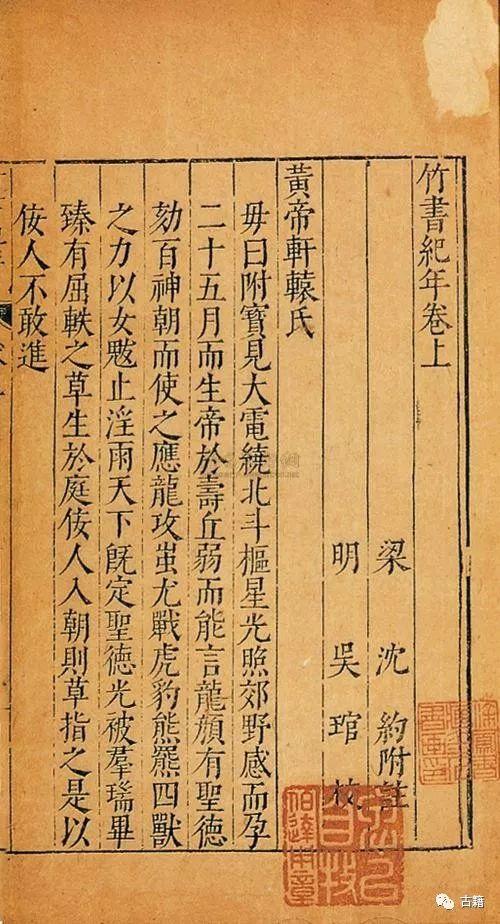 竹書紀年卷上
梁 沈 約附註
明 吳 琯 校
黃帝軒轅氏
毋曰附寶見大電繞北斗樞星光照郊野感而孕
二十五月而生帝於壽丘弱而能言龍顏有聖德
劾百神朝而使之應龍攻蚩尤戰虎豹熊羆四獸
之力以女魃止淫雨天下旣定聖德光被羣瑞畢
臻有屈軼之草生於庭佞人入朝則草指之是以
佞人不敢進
古籍